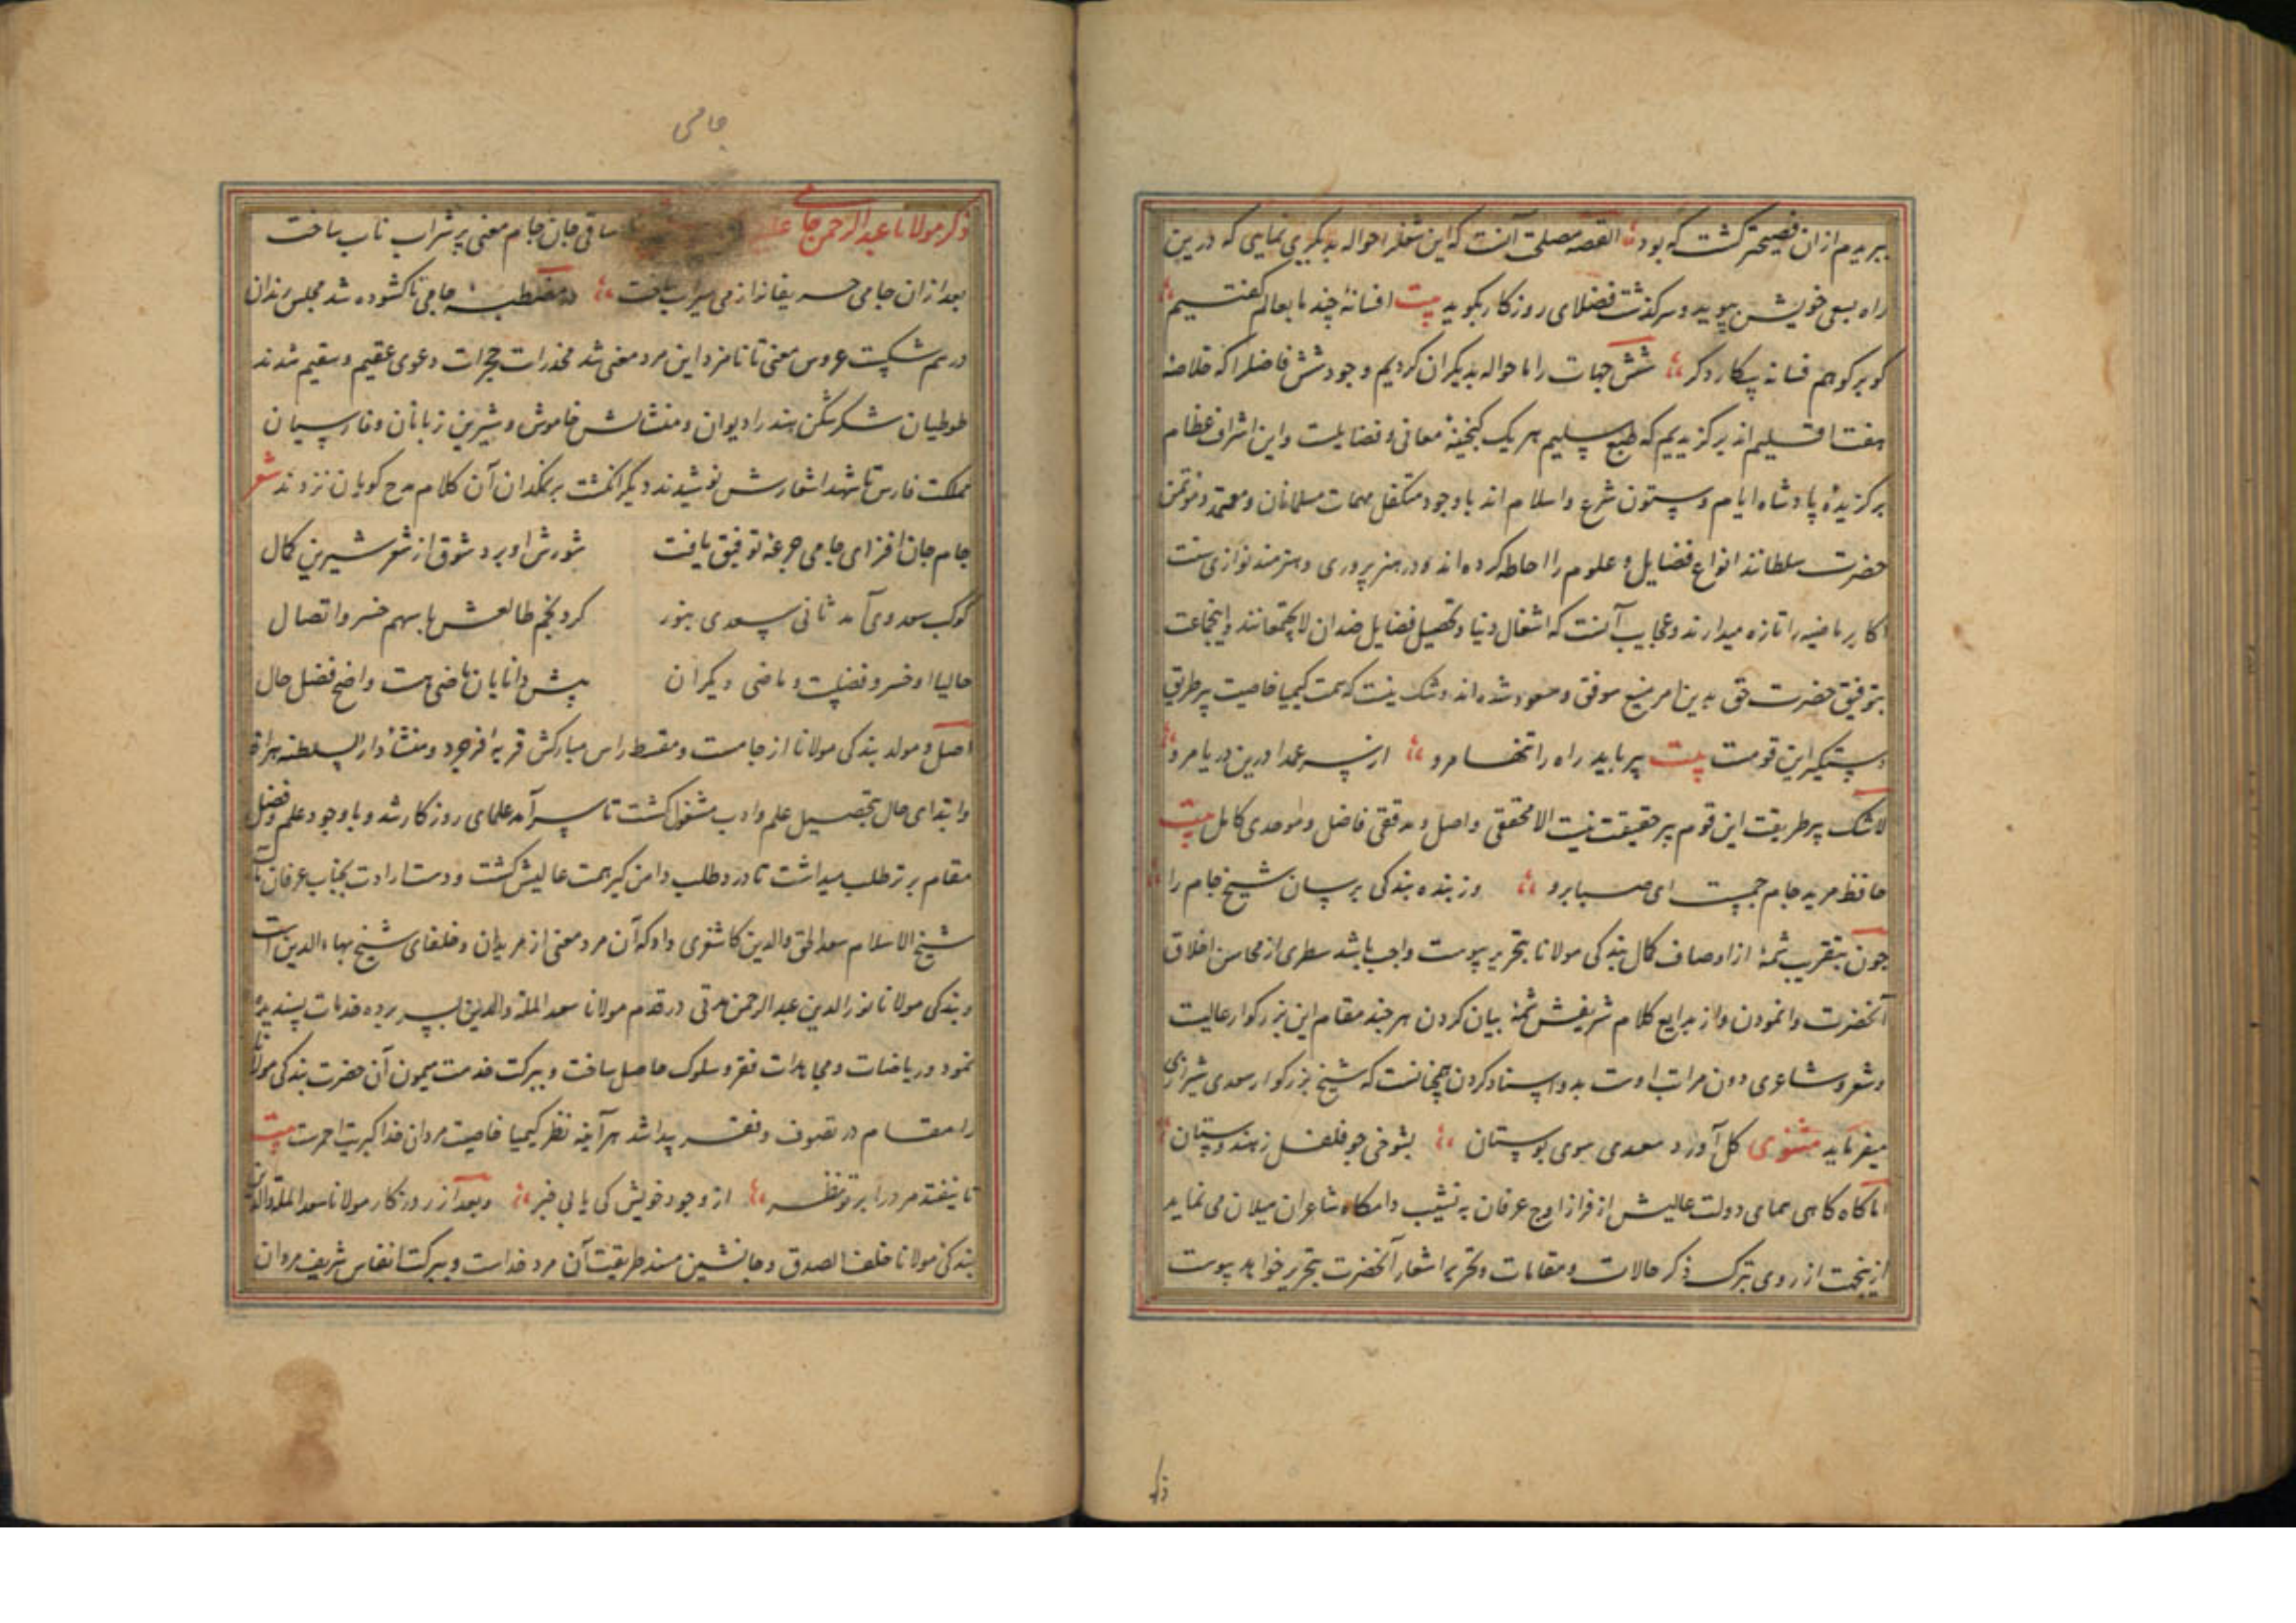 ببریدیم ازان فضیحتر کشت که بود القصه مصلحت آنست که این شغل را حواله بدیگری نمایی که درین
راه بسعی خویش بپوید و سرکذشت فضلای روزکار بکوید بیت افسانهٔ چند ما بعالم کفتیم
کو برکو هم فسانه پیکار دکر شش جهات را ما حواله بدیکران کردیم وجود شش فاضل را که خلاصهٔ
هفت اقلیم اند برکزیدیم که طبع سلیم هر یک کنجینهٔ معانی و فضایلست و این اشراف عظام
برکزیدهٔ پادشاه ایام و ستون شرع و اسلام اند باوجود متکفل مهمات مسلمانان و معتمد و موتمن
حضرت سلطانند انواع فضایل و علوم را احاطه کرده اند و در هنر پروری و هنرمند نوازی سنت
اکابر ماضیه را تازه میدارند و عجایب آنست که اشغال دنیا و تحصیل فضایل ضدان لایجتمعانند و اینجماعت
بتوفیق حضرت حق بدین امر منیع موفق و مسعود شده اند و شک نیست که همت کیمیا خاصیت پیر طریق
دستکیر این قومست بیت پیر باید راه را تنها مرو از سر عمیا درین دریا مرو
لاشک پیر طریقت این قوم پیر حقیقت نیست الا محققی واصل و مدققی فاضل و موحدی کامل بیت
حافظ مرید جام جمست ای صبا برو وز بنده بندکی برسان شیخ جام را
چون بتقریب شمهٔ از اوصاف کمال بندکی مولانا بتحریر پیوست واجب باشد سطری از محاسن اخلاق
آنحضرت وانمودن و از بدایع کلام شریفش شمهٔ بیان کردن هر چند مقام این بزرکوار عالیست
و شعر و شاعری دون مراتب اوست بدو اسناد کردن چنانست که شیخ بزرکوار سعدی شیرازی
میفرماید مثنوی کل آورد سعدی سوی بوستان بشوخی چو فلفل ز هندوستان
اما کاه کاهی همای دولت عالیش از فراز اوج عرفان به نشیب دامکاه شاعران میلان می نماید
ازینجهت از روی تبرک ذکر حالات و مقامات و تحریر اشعار آنحضرت بتحریر خواهد پیوست
ذکر
جامی
ذکر مولانا عبدالرحمن جامی ساقی جان جام معنی پر شراب ناب ساخت
بعد ازان جامی حریفانرا ز می سیراب ساخت در مصطبهٔ جامی تا کشوده شد مجلس رندان
درهم شکست عروس معنی تا نامزد این مرد معنی شد مخدرات حجرات دعوی عقیم و سقیم شدند
طوطیان شکرشکن هند را دیوان و منشاتش خاموش و شیرین زبانان و فارسیان
مملکت فارس تا شهد اشعارش نوشیدند دیکر انکشت بر نمکدان آن کلام ملح کویان نزدند شعر
جام جان افزای جامی جرعهٔ توفیق یافت شورش او برد شوق از شعر شیرین کمال
کوکب سعد وی آمد ثانی سعدی بنور کرد نجم طالعش با سهم خسرو اتصال
حالیا او خسرو فضلست و ماضی دیکران پیش دانایان ماضی هست واضح فضل حال
اصل و مولد بندکی مولانا از جامست و مسقط راس مبارکش قریهٔ خرجرد و منشأ دارالسلطنه هراة
و ابتدای حال بتحصیل علم و ادب مشغول کشت تا سرآمد علمای روزکار شد و باوجود علم و فضل
مقام برتر طلب میداشت تا درد طلب دامن کیر همت عالیش کشت و دست ارادت بجناب عرفان مآب
شیخ الاسلام سعد الحق والدین کاشغری داد که آن مرد معنی از مریدان و خلفای شیخ بهاءالدین است
و بندکی مولانا نورالدین عبدالرحمن مدتی در قدم مولانا سعد الملة والدین بسر برده خدمات پسندیده
نمود و ریاضات و مجاهدات فقر و سلوک حاصل ساخت و ببرکت خدمت میمون آن حضرت بندکی مولانا
را مقام در تصوف و فقر پیدا شد هر آینه نظر کیمیا خاصیت مردان خدا کبریت احمرست بیت
تا نیفتد مرد را بر تو نظر از وجود خویش کی یابی خبر و بعد از روزکار مولانا سعد الملة والدین
بندکی مولانا خلف الصدق و جانشین مسند طریقت آن مرد خداست و ببرکت انفاس شریف مردان